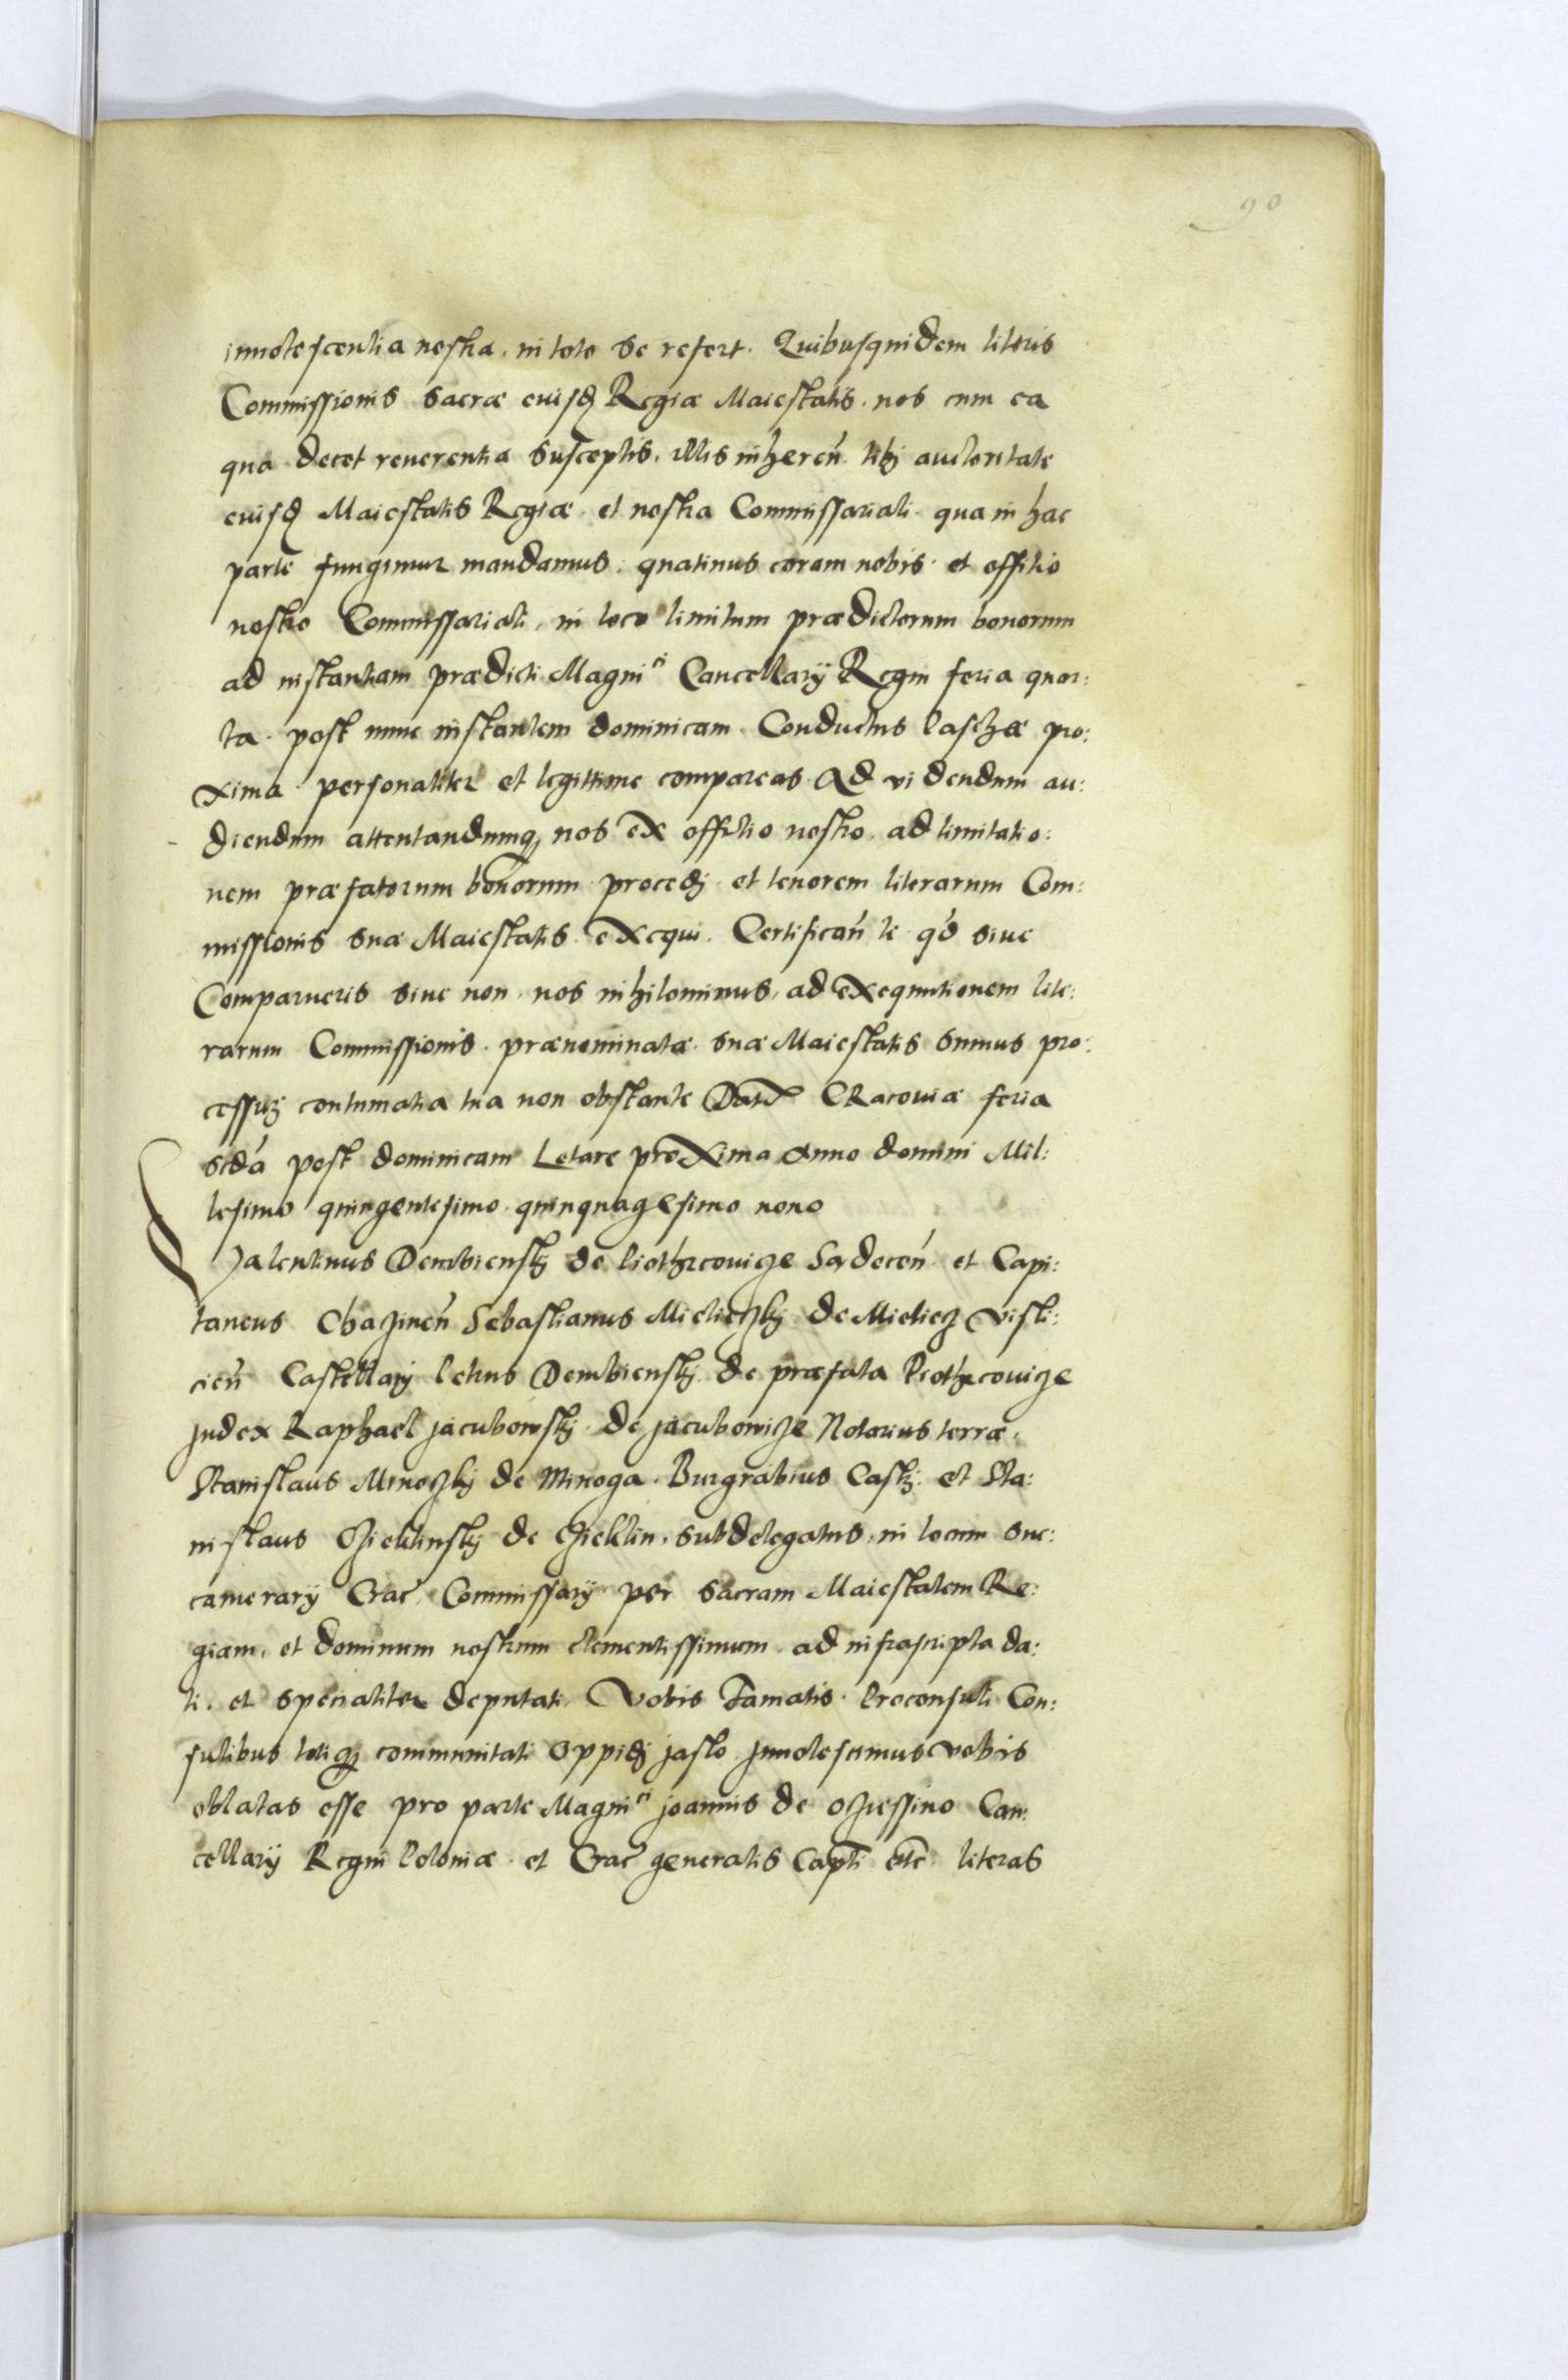 90
innotescentia nostra. in toto se refert. Quibusquidem literis
Commissionis Sacræ euisdꝫ Regiæ Maiestatis. nos cum ea
qua decet reuerentia susceptis. illis inheren̄. tibj auctoritate
euisdꝫ Maiestatis Regiæ. et nostra Commissariali. qua in hac
parte fungimur mandamus. quatinus coram nobis. et offitio
nostro Commissariali. in loco limitum prædictorum bonorum
ad instantiam prædicti Magniᶜⁱ Cancellarÿ Regni feria quar:
ta. post nunc instantem dominicam. Conductus Paschæ pro:
xima personaliter et legittime compareas. Ad videndum au:
diendum attentandumqꝫ nos ex offitio nostro. ad limitatio:
nem præfatorum bonorum procedj. et tenorem literarum Com:
missionis suæ Maiestatis. exequi. Certifican̄ te qd́ siue
Comparueris siue non. nos nihilominus, ad exequutionem lite:
rarum Commissionis. prænominatæ. suæ Maiestatis sumus pro:
cessurj contumatia tua non obstante Dat̄ CRacouiæ feria
scdá post dominicam Letare proxima Anno domini Mil:
lesimo quingentesimo. quinquagesimo nono
Valentinus Dembienskj de Piethrcouicze Sadecen̄ et Capi:
taneus Chazinen̄ Sebastianus Mieliczkj de Mielicz Visli:
cien̄ Castellanj Petrus Dembienskj de præfata Piethrcouicze
Judex Raphael Jacubowskj de Jacubowicze Notarius terræ.
Stanislaus Minoczkj de Minoga. Burgrabius Castrj. et Sta:
nislaus Gieklinskj de Gieklin. subdelegatus. in locum suc:
camerarÿ Crac̄. Commissarÿ per sacram Maiestatem Re:
giam. et dominum nostrum clementissimum. ad infrascripta da:
ti. et specialiter deputati. Vobis Famatis. Proconsuli Con:
sulibus totiqꝫ communitati Oppidj Jaslo Innotescimus vobis
oblatas esse pro parte Magniᶜⁱ Joannis de Oczessino Can:
cellarÿ Regni Poloniæ. et Crac̄ generalis Capt̄i etc̄. literas